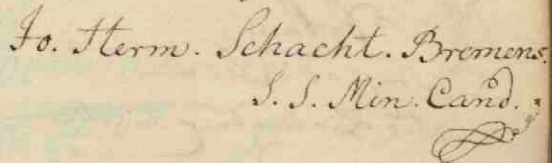 Jo. Herm. Schacht. Bremens.
S. S. Min. Cand.